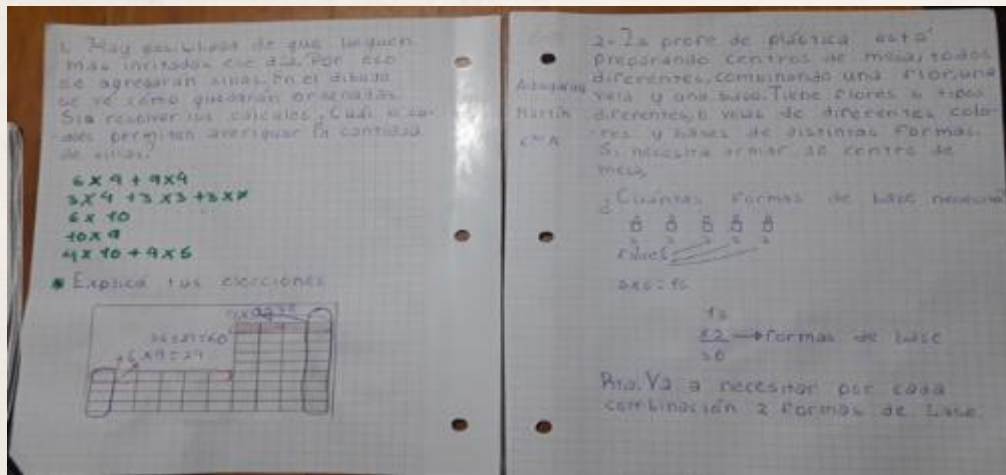 1. Hay posibilidad de que lleguen
más invitados ese día. Por eso
se agregarán sillas. En el dibujo
se ve cómo quedarán ordenadas.
Sin resolver los cálculos. Cuál o cu-
áles permiten averiguar la cantidad
de sillas.
6 x 4 + 9 x 4
3 x 4 + 3 x 3 + 3 x
6 x 10
10 x 9
4 x 10 + 4 x 5
Explicá tus elecciones
36+24=60
6 x 4 = 24
2- La profe de plástica está
preparando centros de mesa, todos
diferentes, combinando una flor, una
vela y una base. Tiene flores
diferentes, velas de diferentes colo-
res y bases de distintas formas.
Si necesita armar 30 centro de
mesa,
Martín
¿Cuántas formas de base necesita
3x5=15
15
x2 → formas de base
30
Rta. Va a necesitar por cada
combinación 2 formas de base.